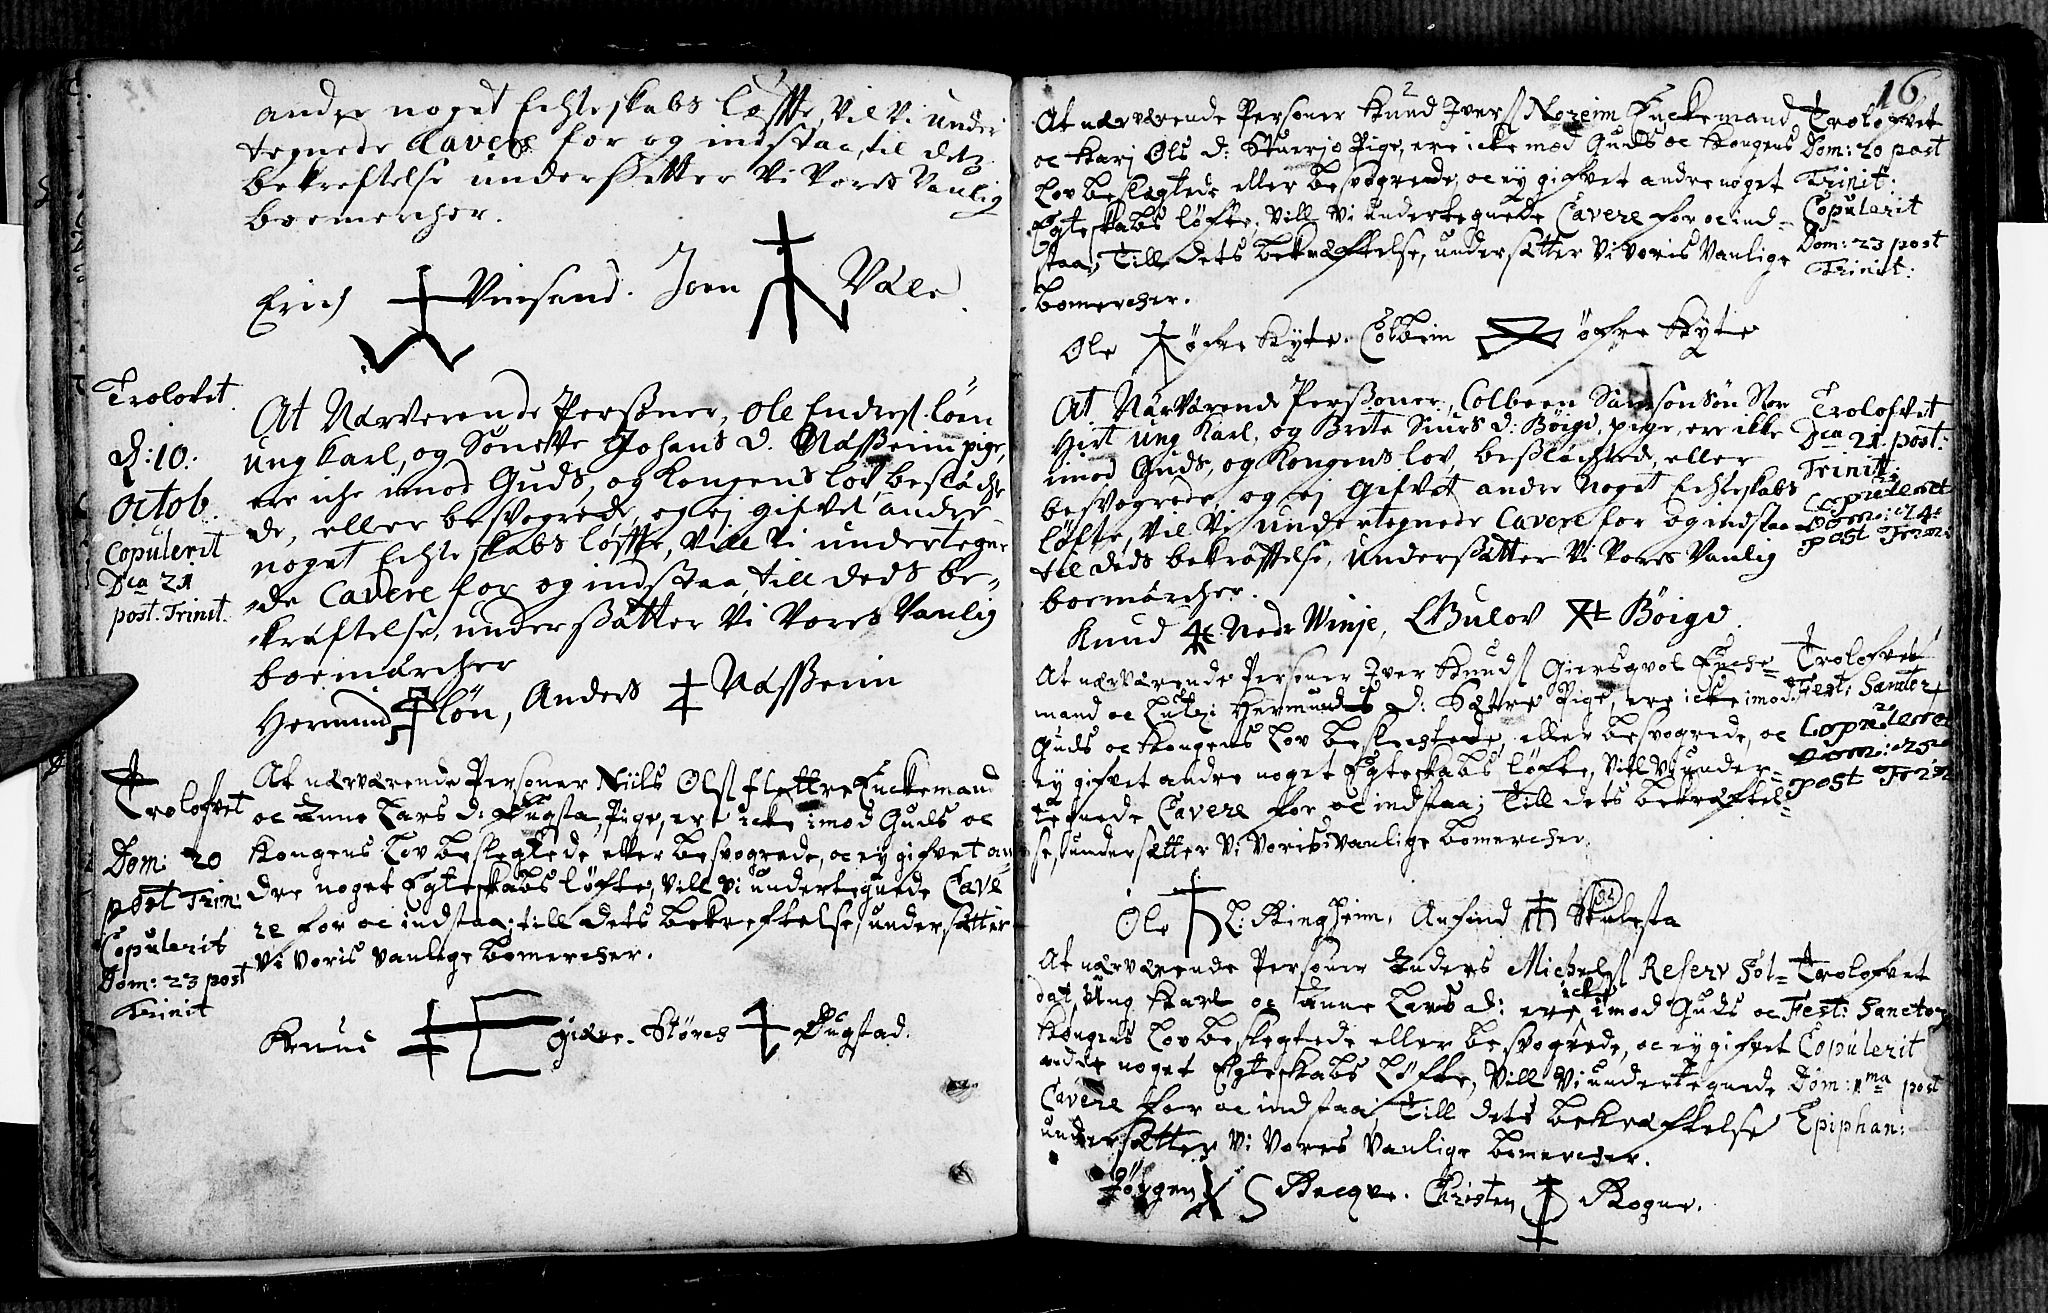 ander noget Echteskabs løffte, Vil Vi under
tegnede Cavere for og indstaa, til dets
bekreftelse undersætter Vi Vores Vanlig
boemercher.
Erich Vinsand. Joen Vale.
Trolovet.
d: 10.
Octob.
Copulerit
Dca 21
post. Trinit.
At Nærverende Personer, Ole Endres. Løen
Ung karl, og Sønetve Johans d. Nasheim pige,
ere iche imod Guds, og Kongens lov, beslachte
de, eller besvogrede, og ej gifvet andre
noget Echteskabs løffte, Vill Vi undertegne
de Cavere for og indstaa, till deds be-
kräftelse, undersätter Vi Vores Vanlig
boemärcher
Hermund Løn, Anders Nasheim
Trolofvet
Dom: 20
post Trin:
Copulerit
Dom: 23 post
Trinit
At nærværende Personer Niils Ols. Flettre Enckemand
oc Anne Lars d: Dugsta, Pige, ere icke imod Guds oc
Kongens Lov beslegtede eller besvogrede, oc ey gifvet an
dre noget Egteskabs løfte, vill vi undertegnede Cave
re for oc indstaa; till dets bekreftelse undersætter
vi voris vanlige bomercher.
Knud Giære. Størck Dugstad.
16
At nærværende Personer Knud Ivers. Noreim Enckemand
oc Kari Ols d: Pige, ere icke mod Guds oc Kongens
Lov beslegtede eller besvogrede, oc ey gifvet andre noget
Egteskabs løfte, vill vi undertegnede Cavere for oc ind-
staa; Till dets bekræftelse, undersætter vi voris vanlige
bomercher.
Trolofvet
Dom: 20 post
Trinit:
Copulerit
Dom: 23 post
Trinit:
Ole øfre Kyte. Colbein øfre Kyte
At Närvärende Personer, Colbeen Samson Søn
Hirt Ung Karl, og Brita Siurs d: Böige, pige, ere ikke
imod Guds, og Kongens lov, beslachtede, eller
besvogrede, og ej Gifvet andre Noget Echteskabs
løfte, Vil Vi undertegnede Cavere for og indstaa
til deds bekräfftelse, undersätter Vi Vores Vanlig
boemärcher.
Trolofvet
Dca 21. post:
Trinit:
Copulerit
Dom: 24
post Trin:
Knud Nedr Winje, Gulov Böige.
At nærværende Personer Iver Knuds. Giersqvol Encke-
mand oc Hermunds d: Sætre Pige, ere icke imod
Guds oc Kongens Lov beslegtede eller besvogrede, oc
ey gifvet andre noget Egteskabs løfte, vill vi under-
tegnede Cavere for oc indstaa; Till dets bekræftel-
se, undersætter vi voris vanlige bomercher.
Trolofvet
Fest: Sanctor
Copulerit
Dom: 25
post Trin
Ole L: Ringheim, Anfind Skulesta
At nærværende Personer Anders Michels. Reserv Sol-
dat, Ung Karl oc Anne Lars d: ere icke imod Guds oc
Kongens Lov beslegtede eller besvogrede, oc ey gifvet
andre noget Egteskabs Løfte, vill vi undertegnede
Cavere for oc indstaa; Till dets bekræftelse
undersætter vi vores vanlige bomercher.
Trolofvet
Fest: Sanctor
Copulerit
Dom: 1ma post
Epiphan:
Jörgen Recqve. Christen Rogne.